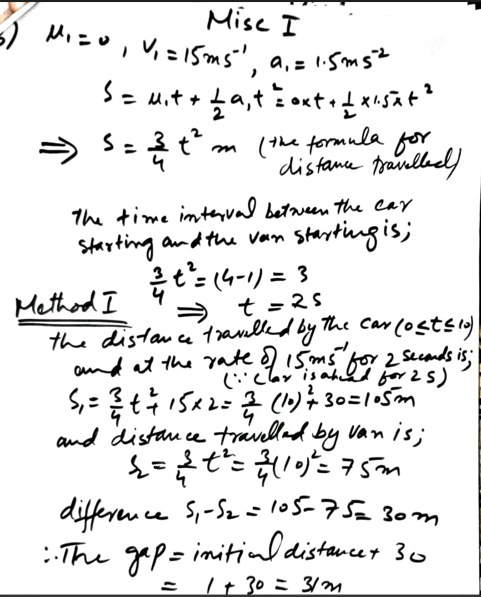 Misc I
5) u₁ = 0, V₁ = 15ms⁻¹, a₁ = 1.5ms⁻²
S = u₁t + ½a₁t² = 0xt + ½ x1.5xt²
⇒ S = 3/4 t² m (the formula for
distance travelled)
The time interval between the car
starting and the van starting is;
3/4 t² = (4-1) = 3
⇒ t = 2s
Method I
the distance travelled by the car (0≤t≤10)
and at the rate of 15ms⁻¹ for 2 seconds is;
(∵ Car is ahead for 2s)
S₁ = 3/4 t² + 15x2 = 3/4 (10)² + 30 = 105m
and distance travelled by van is;
S₂ = 3/4 t² = 3/4 (10)² = 75m
difference S₁-S₂ = 105-75 = 30m
∴ The gap = initial distance + 30
= 1 + 30 = 31m